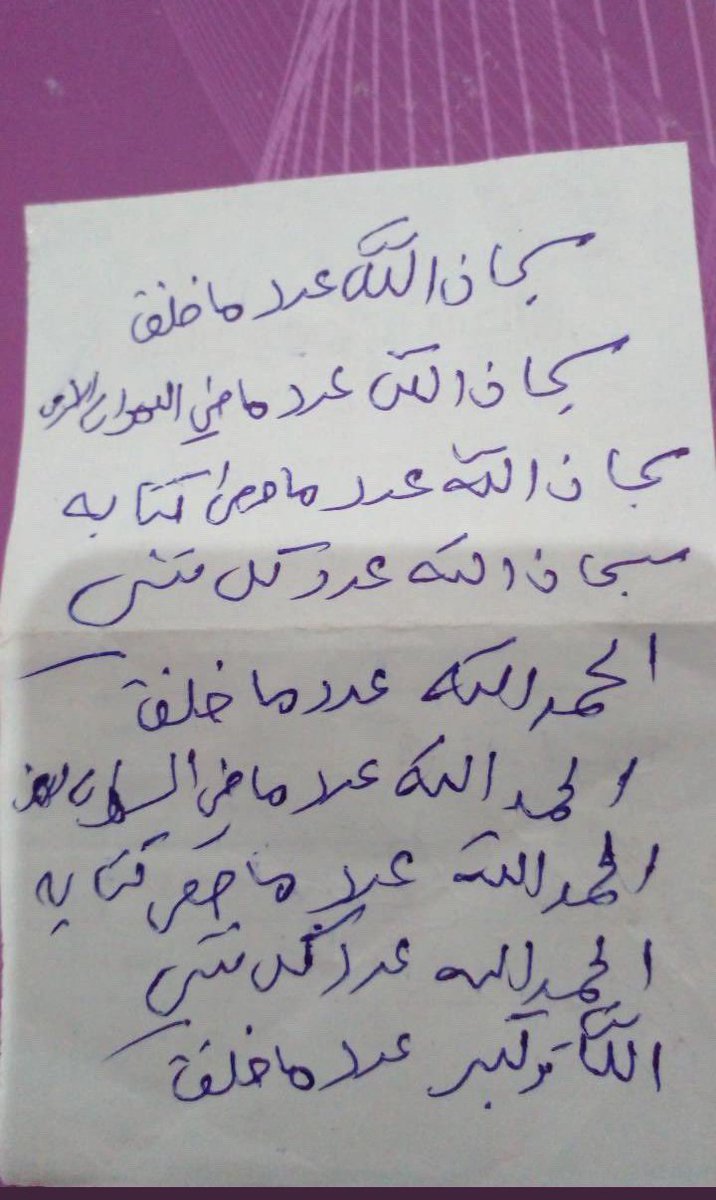 سبحان الله عدد ما خلق
سبحان الله عدد ما في السموات الارض
سبحان الله عدد ما كتابه
سبحان الله عدد كل شى
الحمد لله عدد ما خلق
الحمد الله عدد ما في
الحمد الله عدد ما كتابه
الحمد لله عدد كل شى
الله كبير عدد ما خلق